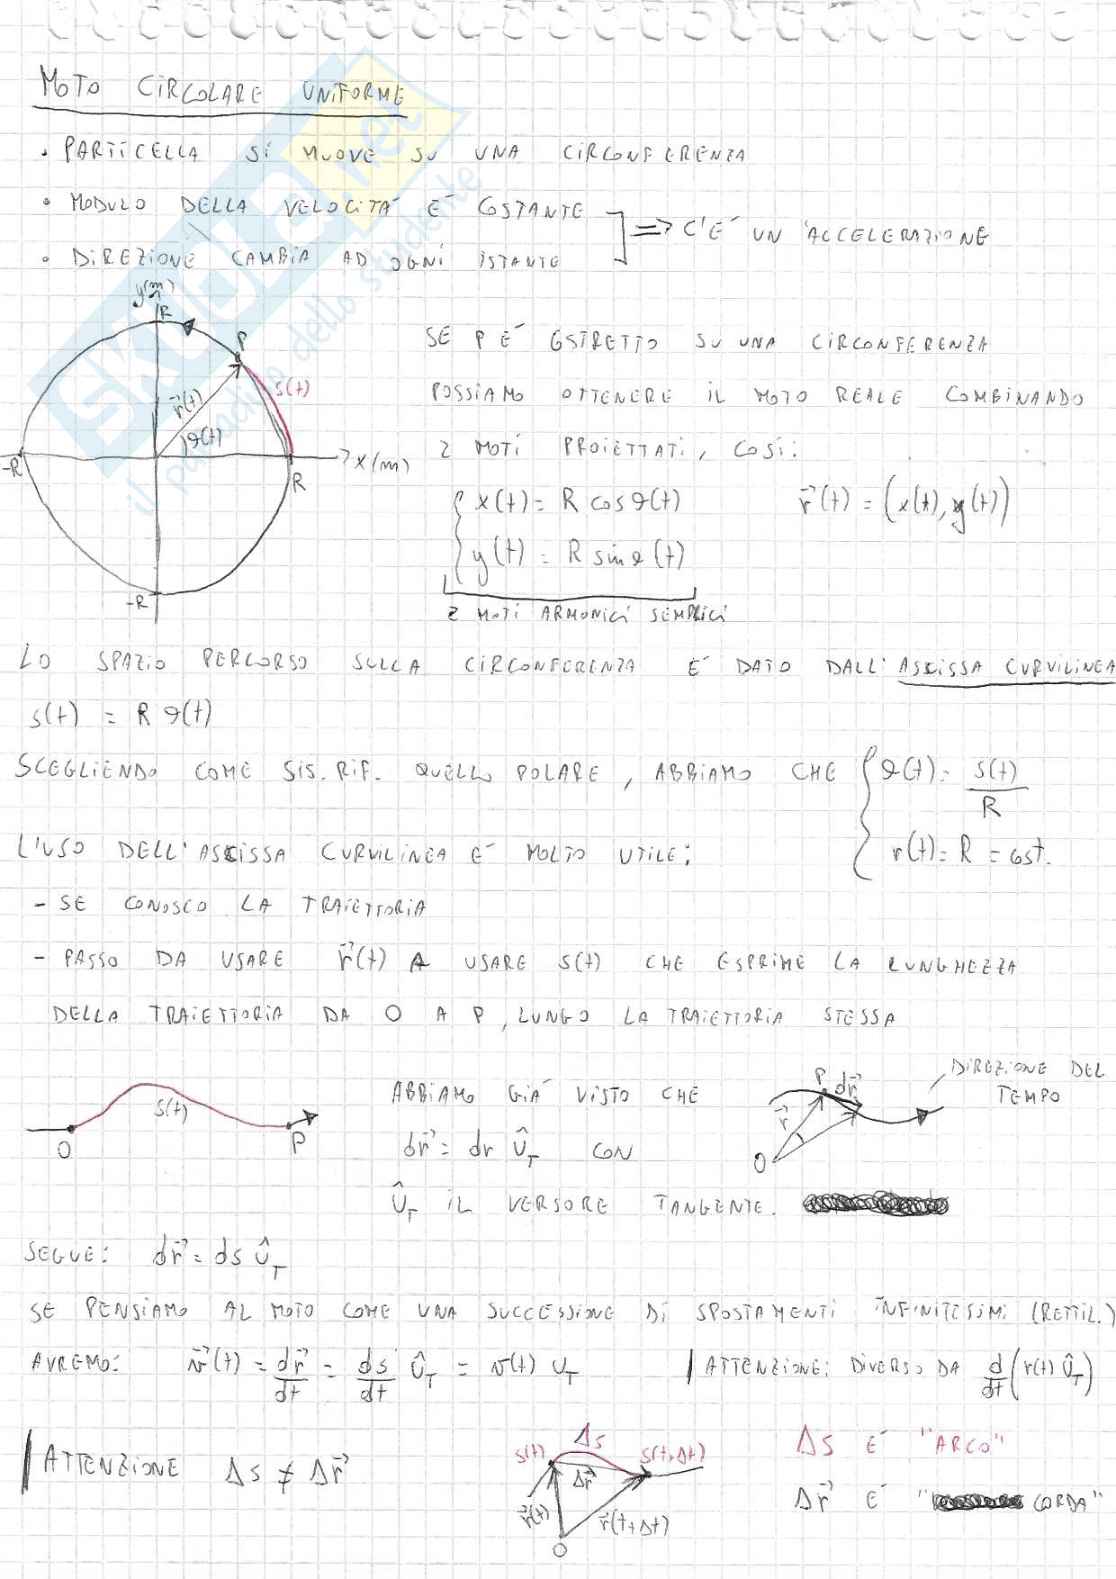 MOTO CIRCOLARE UNIFORME
• PARTICELLA SI MUOVE SU UNA CIRCONFERENZA
• MODULO DELLA VELOCITA' E' COSTANTE
• DIREZIONE CAMBIA AD OGNI ISTANTE
=> C'E' UN ACCELERAZIONE
y(m)
R
P
s(t)
r⃗(t)
θ(t)
-R
x(m)
R
-R
SE P E' COSTRETTO SU UNA CIRCONFERENZA
POSSIAMO OTTENERE IL MOTO REALE COMBINANDO
2 MOTI PROIETTATI, COSI:
{ x(t) = R cosθ(t)
r⃗(t) = (x(t), y(t))
y(t) = R sinθ(t)
2 MOTI ARMONICI SEMPLICI
LO SPAZIO PERCORSO SULLA CIRCONFERENZA E' DATO DALL'ASCISSA CURVILINEA
s(t) = R θ(t)
SCEGLIENDO COME SIS. RIF. QUELLO POLARE, ABBIAMO CHE { θ(t) = s(t)/R
r(t) = R = cost.
L'USO DELL'ASCISSA CURVILINEA E' MOLTO UTILE:
- SE CONOSCO LA TRAIETTORIA
- PASSO DA USARE r⃗(t) A USARE s(t) CHE ESPRIME LA LUNGHEZZA
DELLA TRAIETTORIA DA O A P, LUNGO LA TRAIETTORIA STESSA
s(t)
O
P
ABBIAMO GIA' VISTO CHE
dr⃗ = dr Û_T CON
Û_T IL VERSORE TANGENTE.
P
dr⃗
r⃗
O
DIREZIONE DEL
TEMPO
SEGUE: dr⃗ = ds Û_T
SE PENSIAMO AL MOTO COME UNA SUCCESSIONE DI SPOSTAMENTI INFINITESIMI (RETTIL.)
AVREMO: v⃗(t) = dr⃗/dt = ds/dt Û_T = v(t) U_T
| ATTENZIONE: DIVERSO DA d/dt (r(t) Û_T)
| ATTENZIONE Δs ≠ Δr⃗
s(t)
Δs
s(t+Δt)
Δr⃗
r⃗(t)
r⃗(t+Δt)
O
Δs E' "ARCO"
Δr⃗ E' "CORDA"
SKUOLA.net
il paradiso dello studente